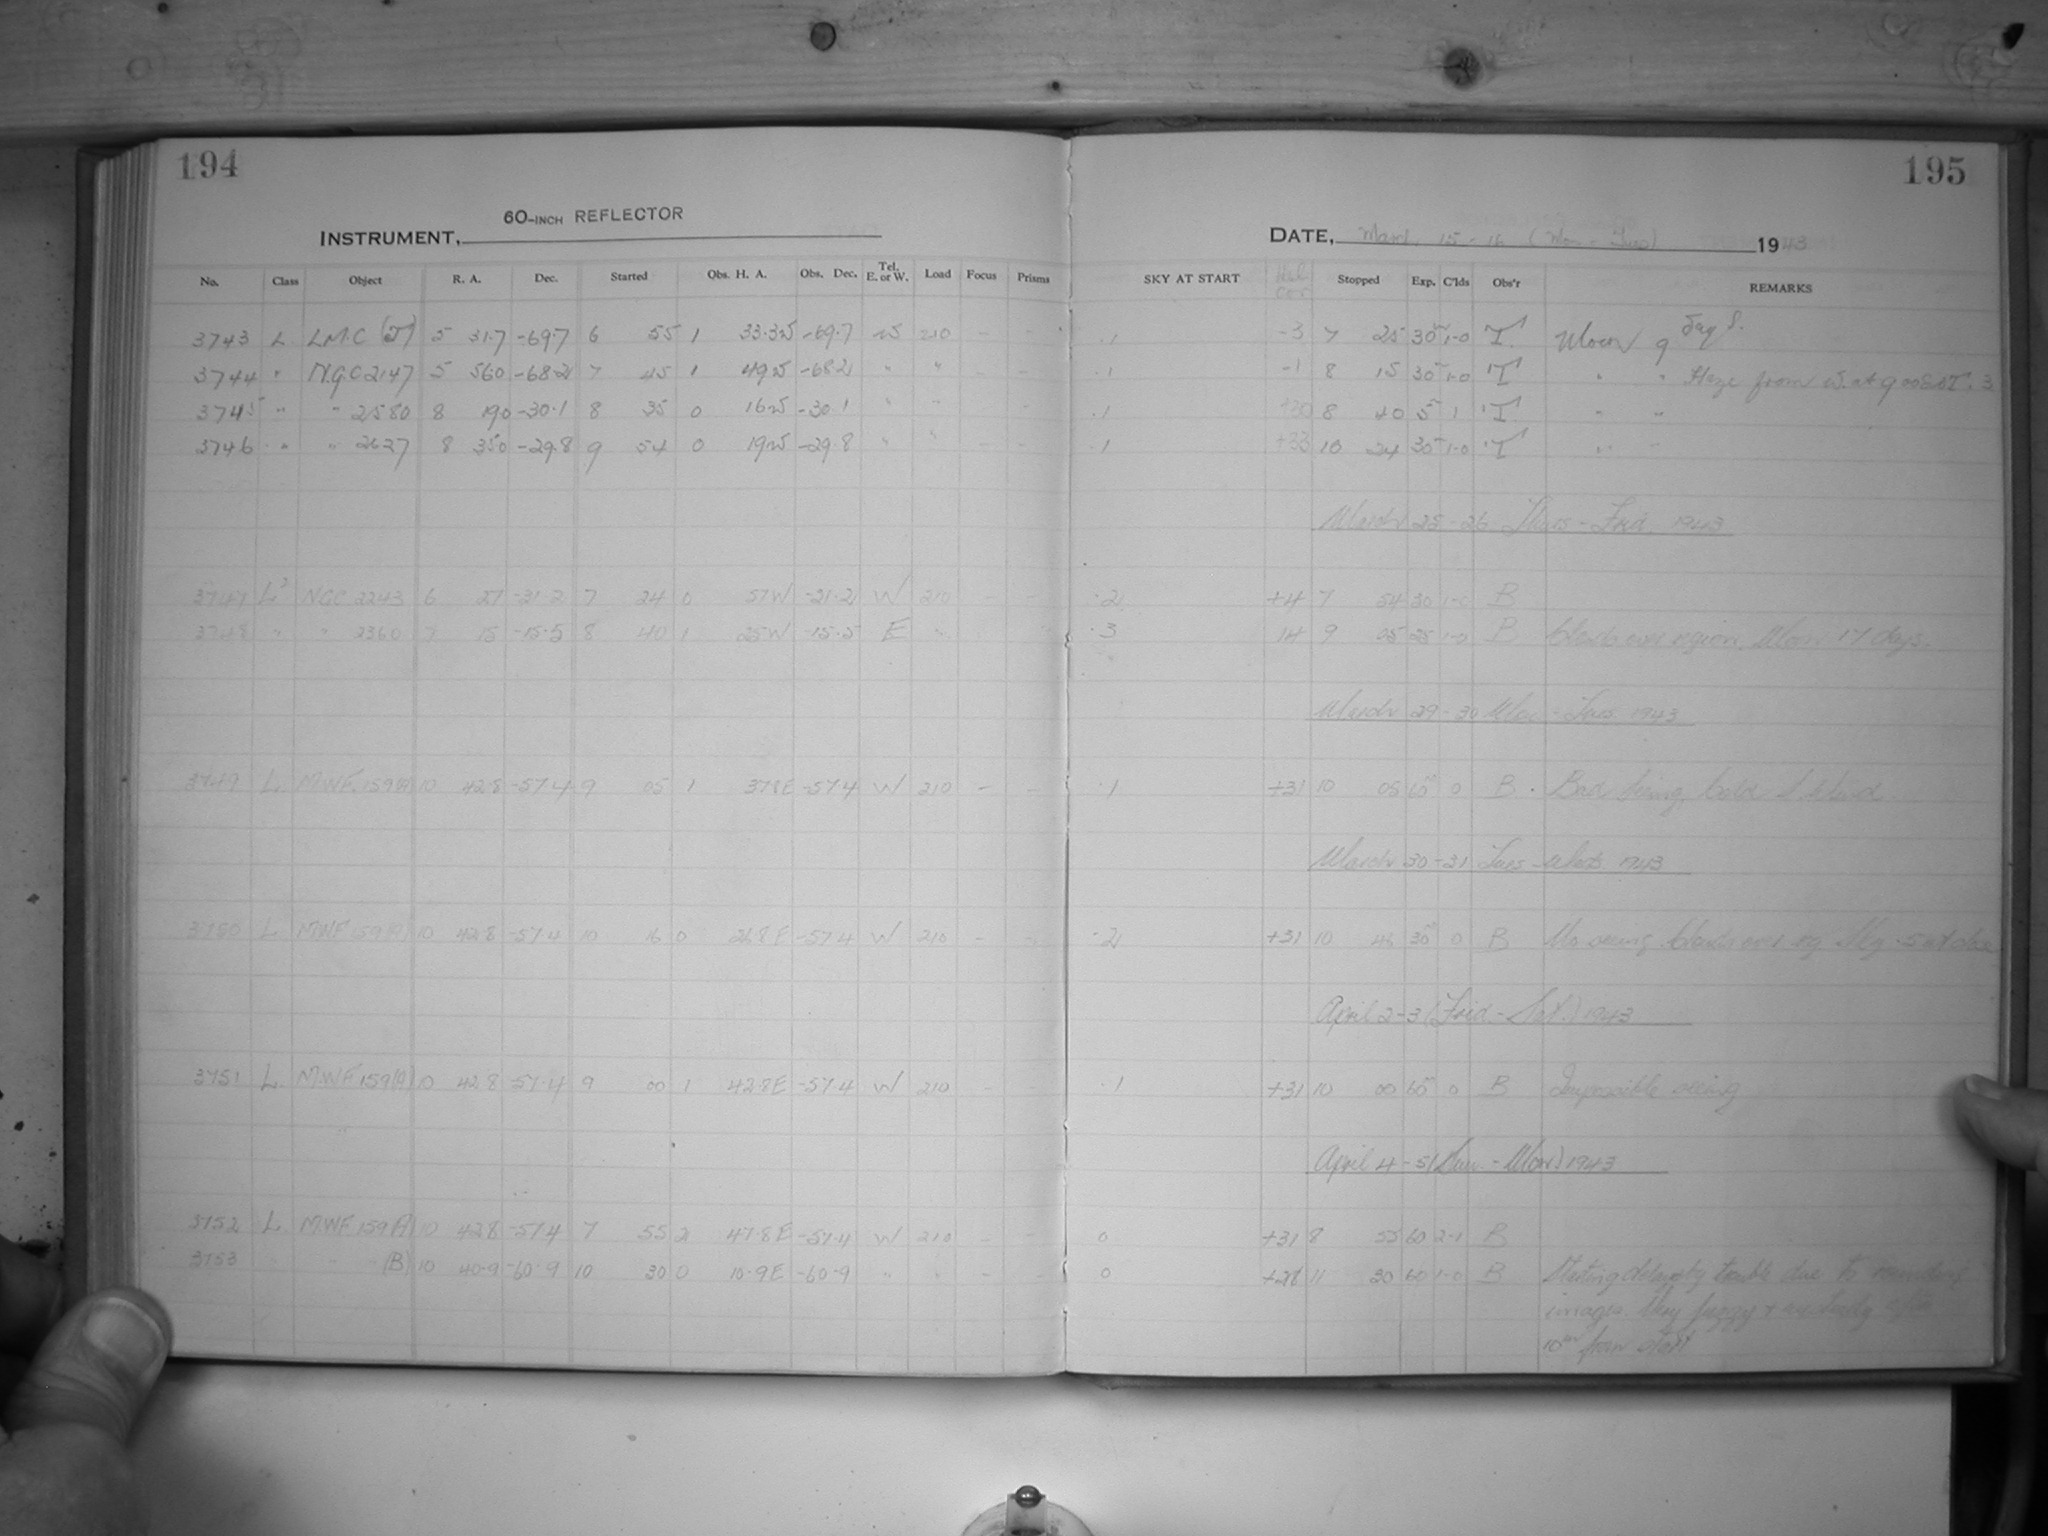 194
195
60-INCH REFLECTOR
INSTRUMENT,
DATE, March 15-16 (Mon - Tues) 1943
No. Class Object R. A. Dec. Started Obs. H. A. Obs. Dec. Tel. E. or W. Load Focus Prisms SKY AT START Stopped Exp. C'lds Obs'r REMARKS
3743 L LMC (J) 5 31.7 -69.7 6 55 1 33.3W -69.7 W 210 - - .1 -3 7 25 30m 1-0 T. Moon 9 days.
3744 " N.G.C 2147 5 56.0 -68.2 7 45 1 49W -68.2 " " - - .1 -1 8 15 30m 1-0 T " " Haze from W. at 9
3745 " " 2580 8 19.0 -30.1 8 35 0 16W -30.1 " " - - .1 +30 8 40 5m 1 T " "
3746 " " 2627 8 35.0 -29.8 9 54 0 19W -29.8 " " - - .1 +33 10 24 30m 1-0 T " "
March 25-26 Thurs - Frid. 1943
3747 L NGC 2243 6 27 -31.2 7 24 0 57W -31.2 W 210 - - .2 +4 7 54 30 1-0 B
3748 " " 2360 7 15 -15.5 8 40 1 25W -15.5 E " .3 14 9 05 25 1-0 B Clouds over region. Moon 17 days.
March 29-30 Mon - Tues. 1943
3749 L MWF 159(A) 10 42.8 -57.4 9 05 1 37.8E -57.4 W 210 - - .1 +31 10 05 60m 0 B. Bad seeing. Cold S. Wind
March 30-31 Tues - Weds. 1943
3750 L MWF 159(A) 10 42.8 -57.4 10 16 0 26.8E -57.4 W 210 - - .2 +31 10 46 30m 0 B No seeing. Clouds over
April 2-3 (Frid - Sat.) 1943
3751 L MWF 159(A) 10 42.8 -57.4 9 00 1 42.8E -57.4 W 210 - - .1 +31 10 00 60m 0 B Impossible seeing
April 4-5 (Sun - Mon) 1943
3752 L MWF 159(A) 10 42.8 -57.4 7 55 2 47.8E -57.4 W 210 - - 0 +31 8 55 60 2-1 B
3753 " " (B) 10 40.9 -60.9 10 30 0 10.9E -60.9 " " - - 0 +28 11 30 60 1-0 B Starting trouble due to
images. Very fuzzy +
10m from start